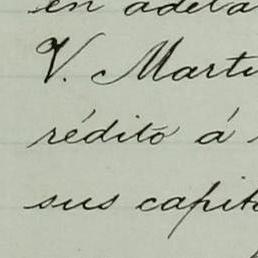 en adela
V. Marti
rédito á
sus capita